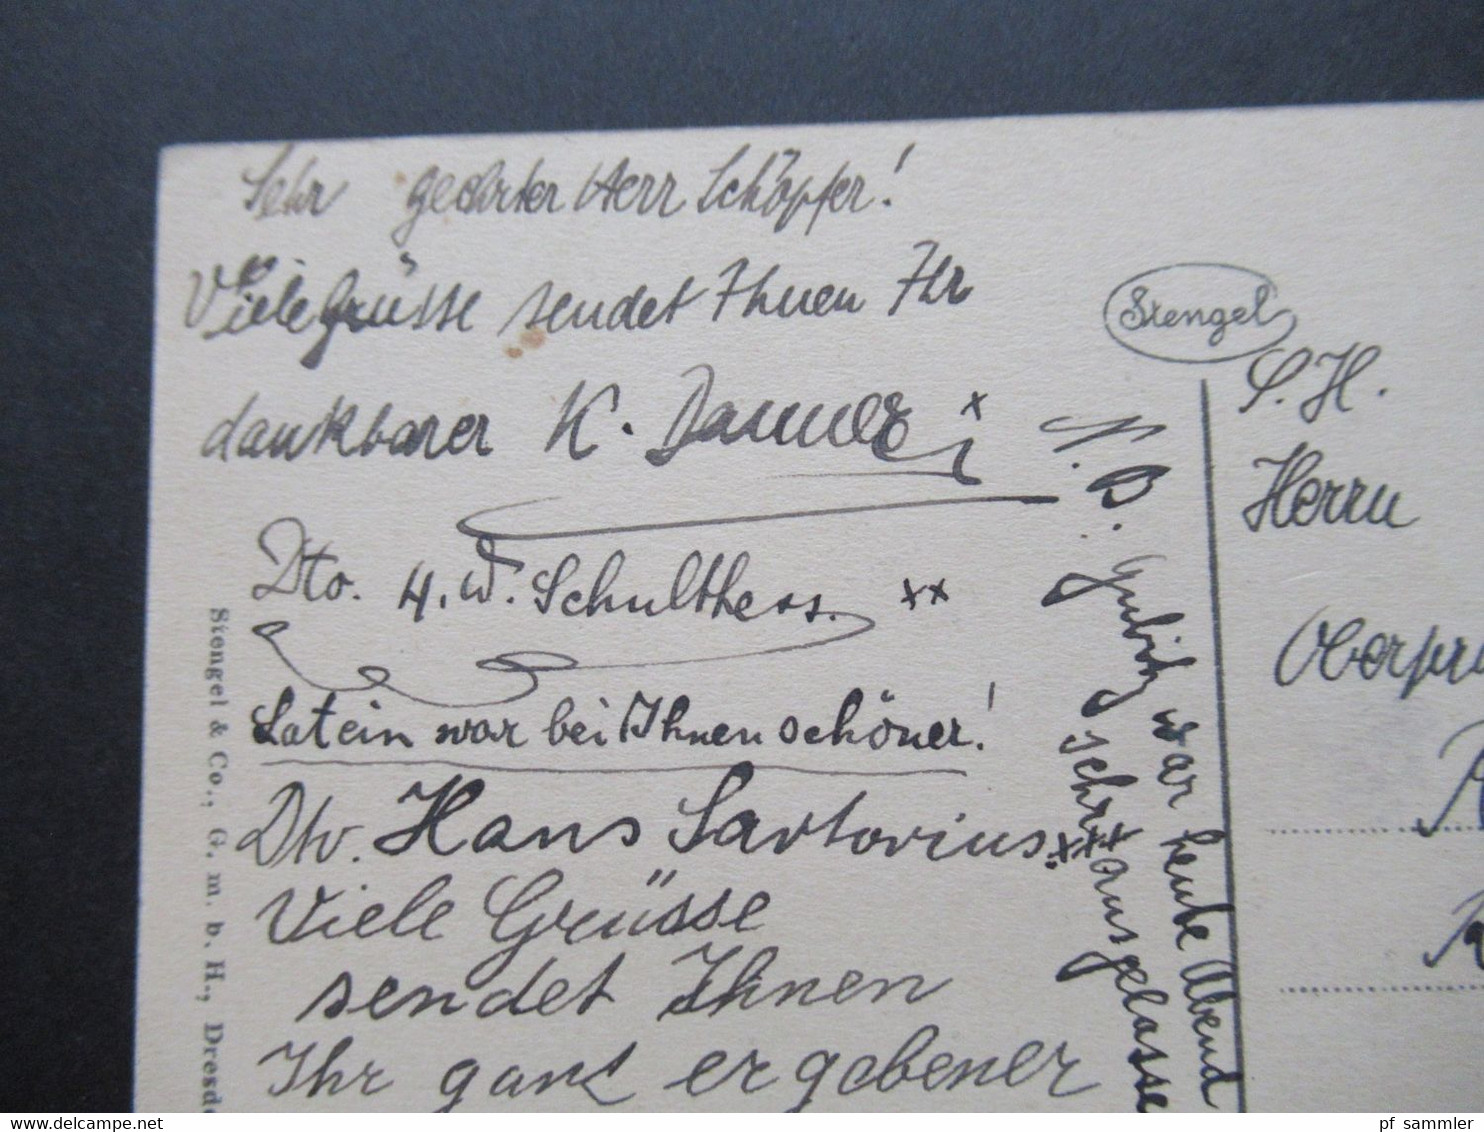 Sehr geehrter Herr Schöpfer!
Viele Grüsse sendet Ihnen Ihr
dankbarer K.
Dto. H. W. Schulthess. xx
Latein war bei Ihnen schöner!
Dto. Hans Sartorius. xxx
Viele Grüsse
sendet Ihnen
Ihr ganz ergebener
N.B. Gubitz war heute Abend
sehr ausgelasse
Stengel
S. H.
Herrn
Oberpr
Stengel & Co., G. m. b. H., Dresd
pf sammler